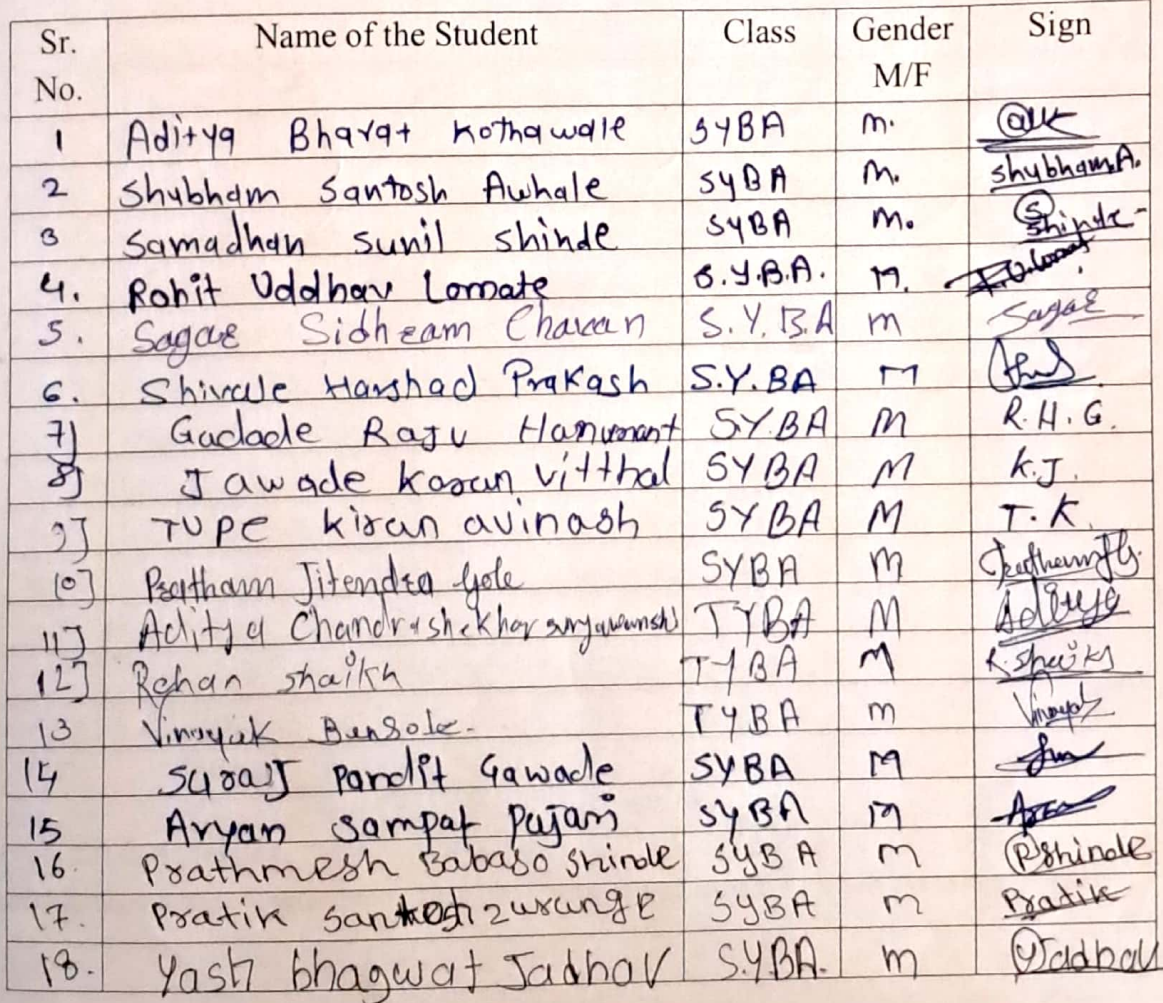 Sr. No. Name of the Student Class Gender M/F Sign
1 Aditya Bharat Kothawale SYBA M.
2 Shubham Santosh Awhale SYBA M. Shubham.A.
3 Samadhan Sunil Shinde SYBA M. S Shinde
4. Rohit Uddhav Lomate S.Y.B.A. M.
5. Sagar Sidhram Chavan S.Y.B.A M Sagar
6. Shivale Harshad Prakash S.Y.BA M
7] Gadade Raju Hanumant S.Y.BA M R.H.G.
8] Jawade Karan vitthal SYBA M K.J.
9] TUPE kiran avinash SYBA M T.K.
10] Pratham Jitendra Gole SYBA M
11] Aditya Chandrashekhar suryawanshi TYBA M Aditya
12] Rehan shaikh TYBA M R.Shaikh
13 Vinayak Bansole. TYBA M Vinayak
14 Suraj Pandit Gawade SYBA M
15 Aryan Sampat Pujari SYBA M
16. Prathmesh Babaso Shinde SYBA M PShinde
17. Pratik Santosh zurunge SYBA M Pratik
18. Yash bhagwat Jadhav S.YBA. M YJadhav